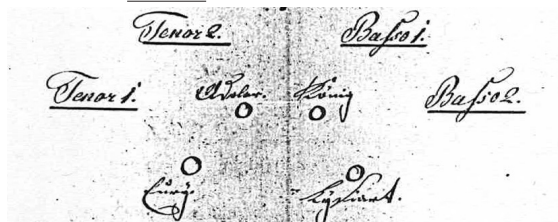 Tenor 2. Basso 1.
Tenor 1. Adolar. König Basso 2.
Eury. Lysiart.